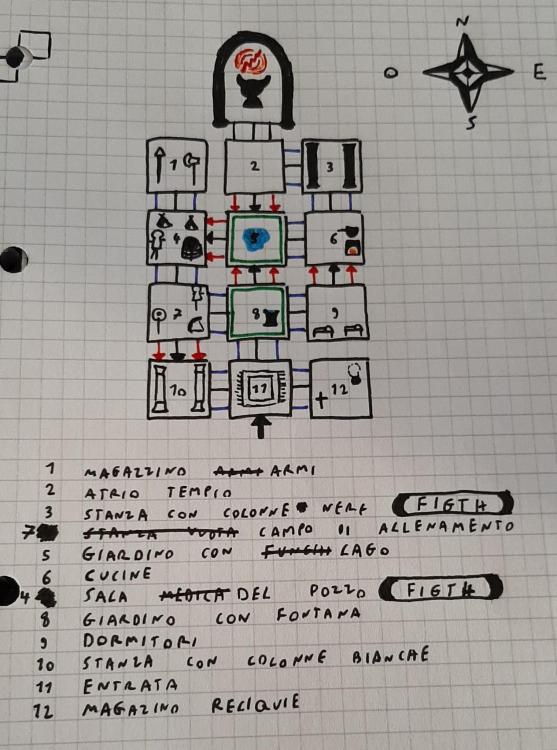 N
O E
S
1 2 3
4 5 6
7 8 9
10 11 12
1 MAGAZZINO ARMI ARMI
2 ATRIO TEMPIO
3 STANZA CON COLONNE NERE FIGTH
7 STANZA VUOTA CAMPO DI ALLENAMENTO
5 GIARDINO CON FUNGHI LAGO
6 CUCINE
4 SALA MEDICA DEL POZZO FIGTH
8 GIARDINO CON FONTANA
9 DORMITORI
10 STANZA CON COLONNE BIANCHE
11 ENTRATA
12 MAGAZINO RELIQUIE